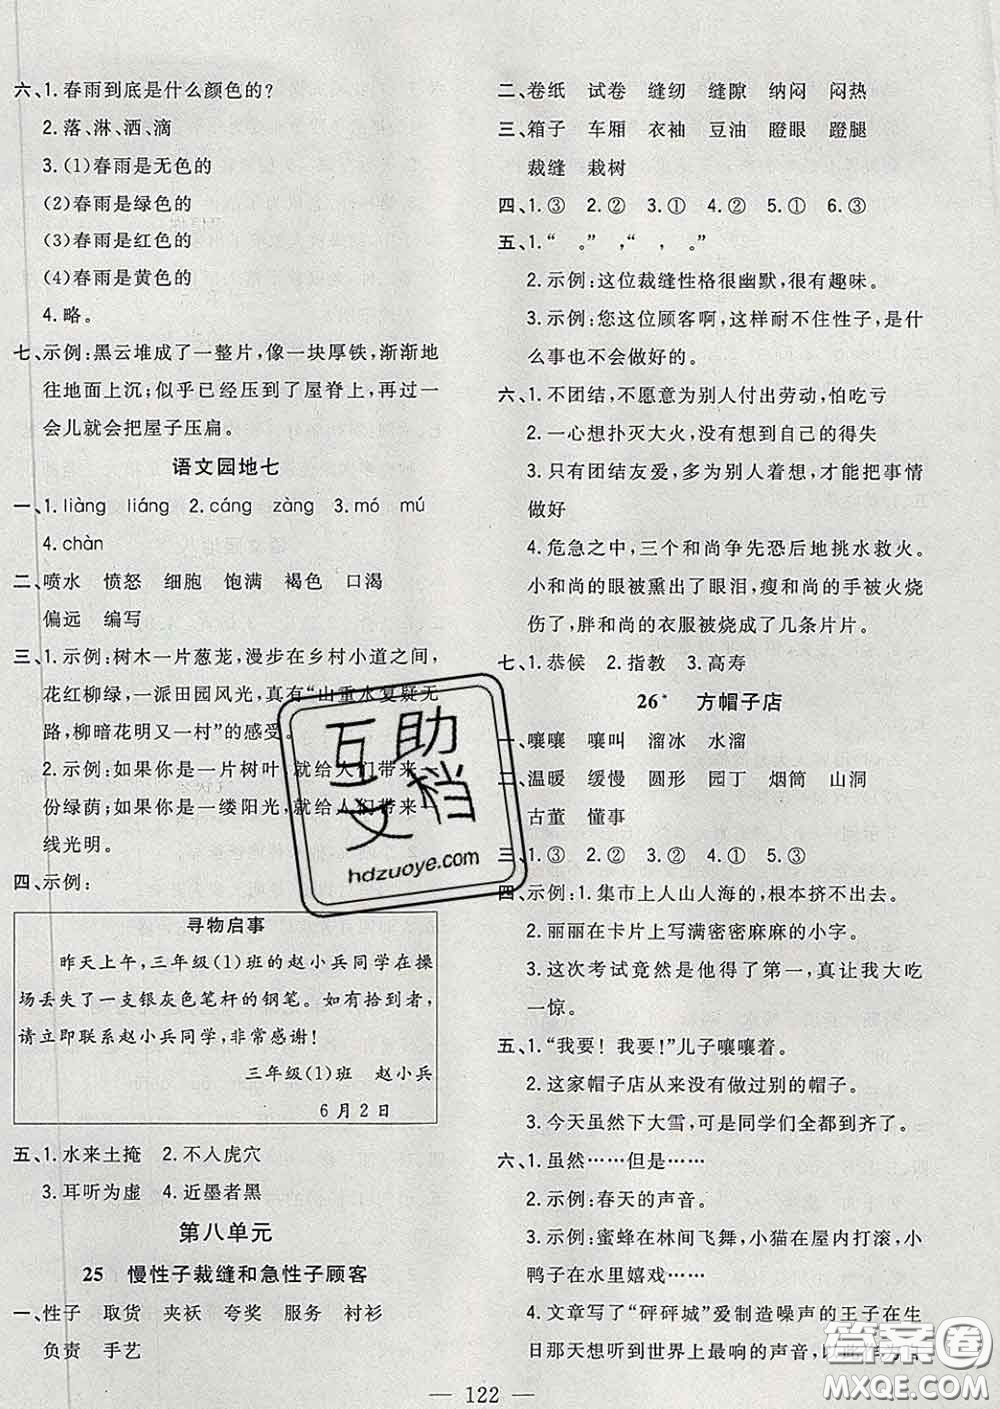 六、1.春雨到底是什么颜色的?
2.落、淋、洒、滴
3.(1)春雨是无色的
(2)春雨是绿色的
(3)春雨是红色的
(4)春雨是黄色的
4.略。
七、示例:黑云堆成了一整片,像一块厚铁,渐渐地
往地面上沉;似乎已经压到了屋脊上,再过一
会儿就会把屋子压扁。
语文园地七
一、1.liàng liáng 2.cáng zàng 3.mó mú
4.chàn
二、喷水 愤怒 细胞 饱满 褐色 口渴
偏远 编写
三、1.示例:树木一片葱茏,漫步在乡村小道之间,
花红柳绿,一派田园风光,真有“山重水复疑无
路,柳暗花明又一村”的感受。
2.示例:如果你是一片树叶,就给人们带来一
份绿荫;如果你是一缕阳光,就给人们带来一
线光明。
四、示例:
寻物启事
昨天上午,三年级(1)班的赵小兵同学在操
场丢失了一支银灰色笔杆的钢笔。如有拾到者,
请立即联系赵小兵同学,非常感谢!
三年级(1)班 赵小兵
6月2日
五、1.水来土掩 2.不入虎穴
3.耳听为虚 4.近墨者黑
第八单元
25 慢性子裁缝和急性子顾客
一、性子 取货 夹袄 夸奖 服务 衬衫
负责 手艺
二、卷纸 试卷 缝纫 缝隙 纳闷 闷热
三、箱子 车厢 衣袖 豆油 瞪眼 蹬腿
裁缝 栽树
四、1.③ 2.② 3.① 4.② 5.① 6.③
五、1.“ 。” ,“ , 。”
2.示例:这位裁缝性格很幽默,很有趣味。
3.示例:您这位顾客啊,这样耐不住性子,是什
么事也不会做好的。
六、1.不团结,不愿意为别人付出劳动,怕吃亏
2.一心想扑灭大火,没有想到自己的得失
3.只有团结友爱,多为别人着想,才能把事情
做好
4.危急之中,三个和尚争先恐后地挑水救火。
小和尚的眼被熏出了眼泪,瘦和尚的手被火烧
伤了,胖和尚的衣服被烧成了几条片片。
七、1.恭候 2.指教 3.高寿
26* 方帽子店
一、嚷嚷 嚷叫 溜冰 水溜
二、温暖 缓慢 圆形 园丁 烟筒 山洞
古董 懂事
三、1.③ 2.② 3.① 4.② 5.③
四、示例:1.集市上人山人海的,根本挤不出去。
2.丽丽在卡片上写满密密麻麻的小字。
3.这次考试竟然是他得了第一,真让我大吃
一惊。
五、1.“我要!我要!”儿子嚷嚷着。
2.这家帽子店从来没有做过别的帽子。
3.今天虽然下大雪,可是同学们全都到齐了。
六、1.虽然……但是……
2.示例:春天的声音。
3.示例:蜜蜂在林间飞舞,小猫在屋内打滚,小
鸭子在水里嬉戏……
4.文章写了“砰砰城”爱制造噪声的王子在生
日那天想听到世界上最响的声音,
122
互助
文档
hdzuoye.com
答案圈
MXQE.COM